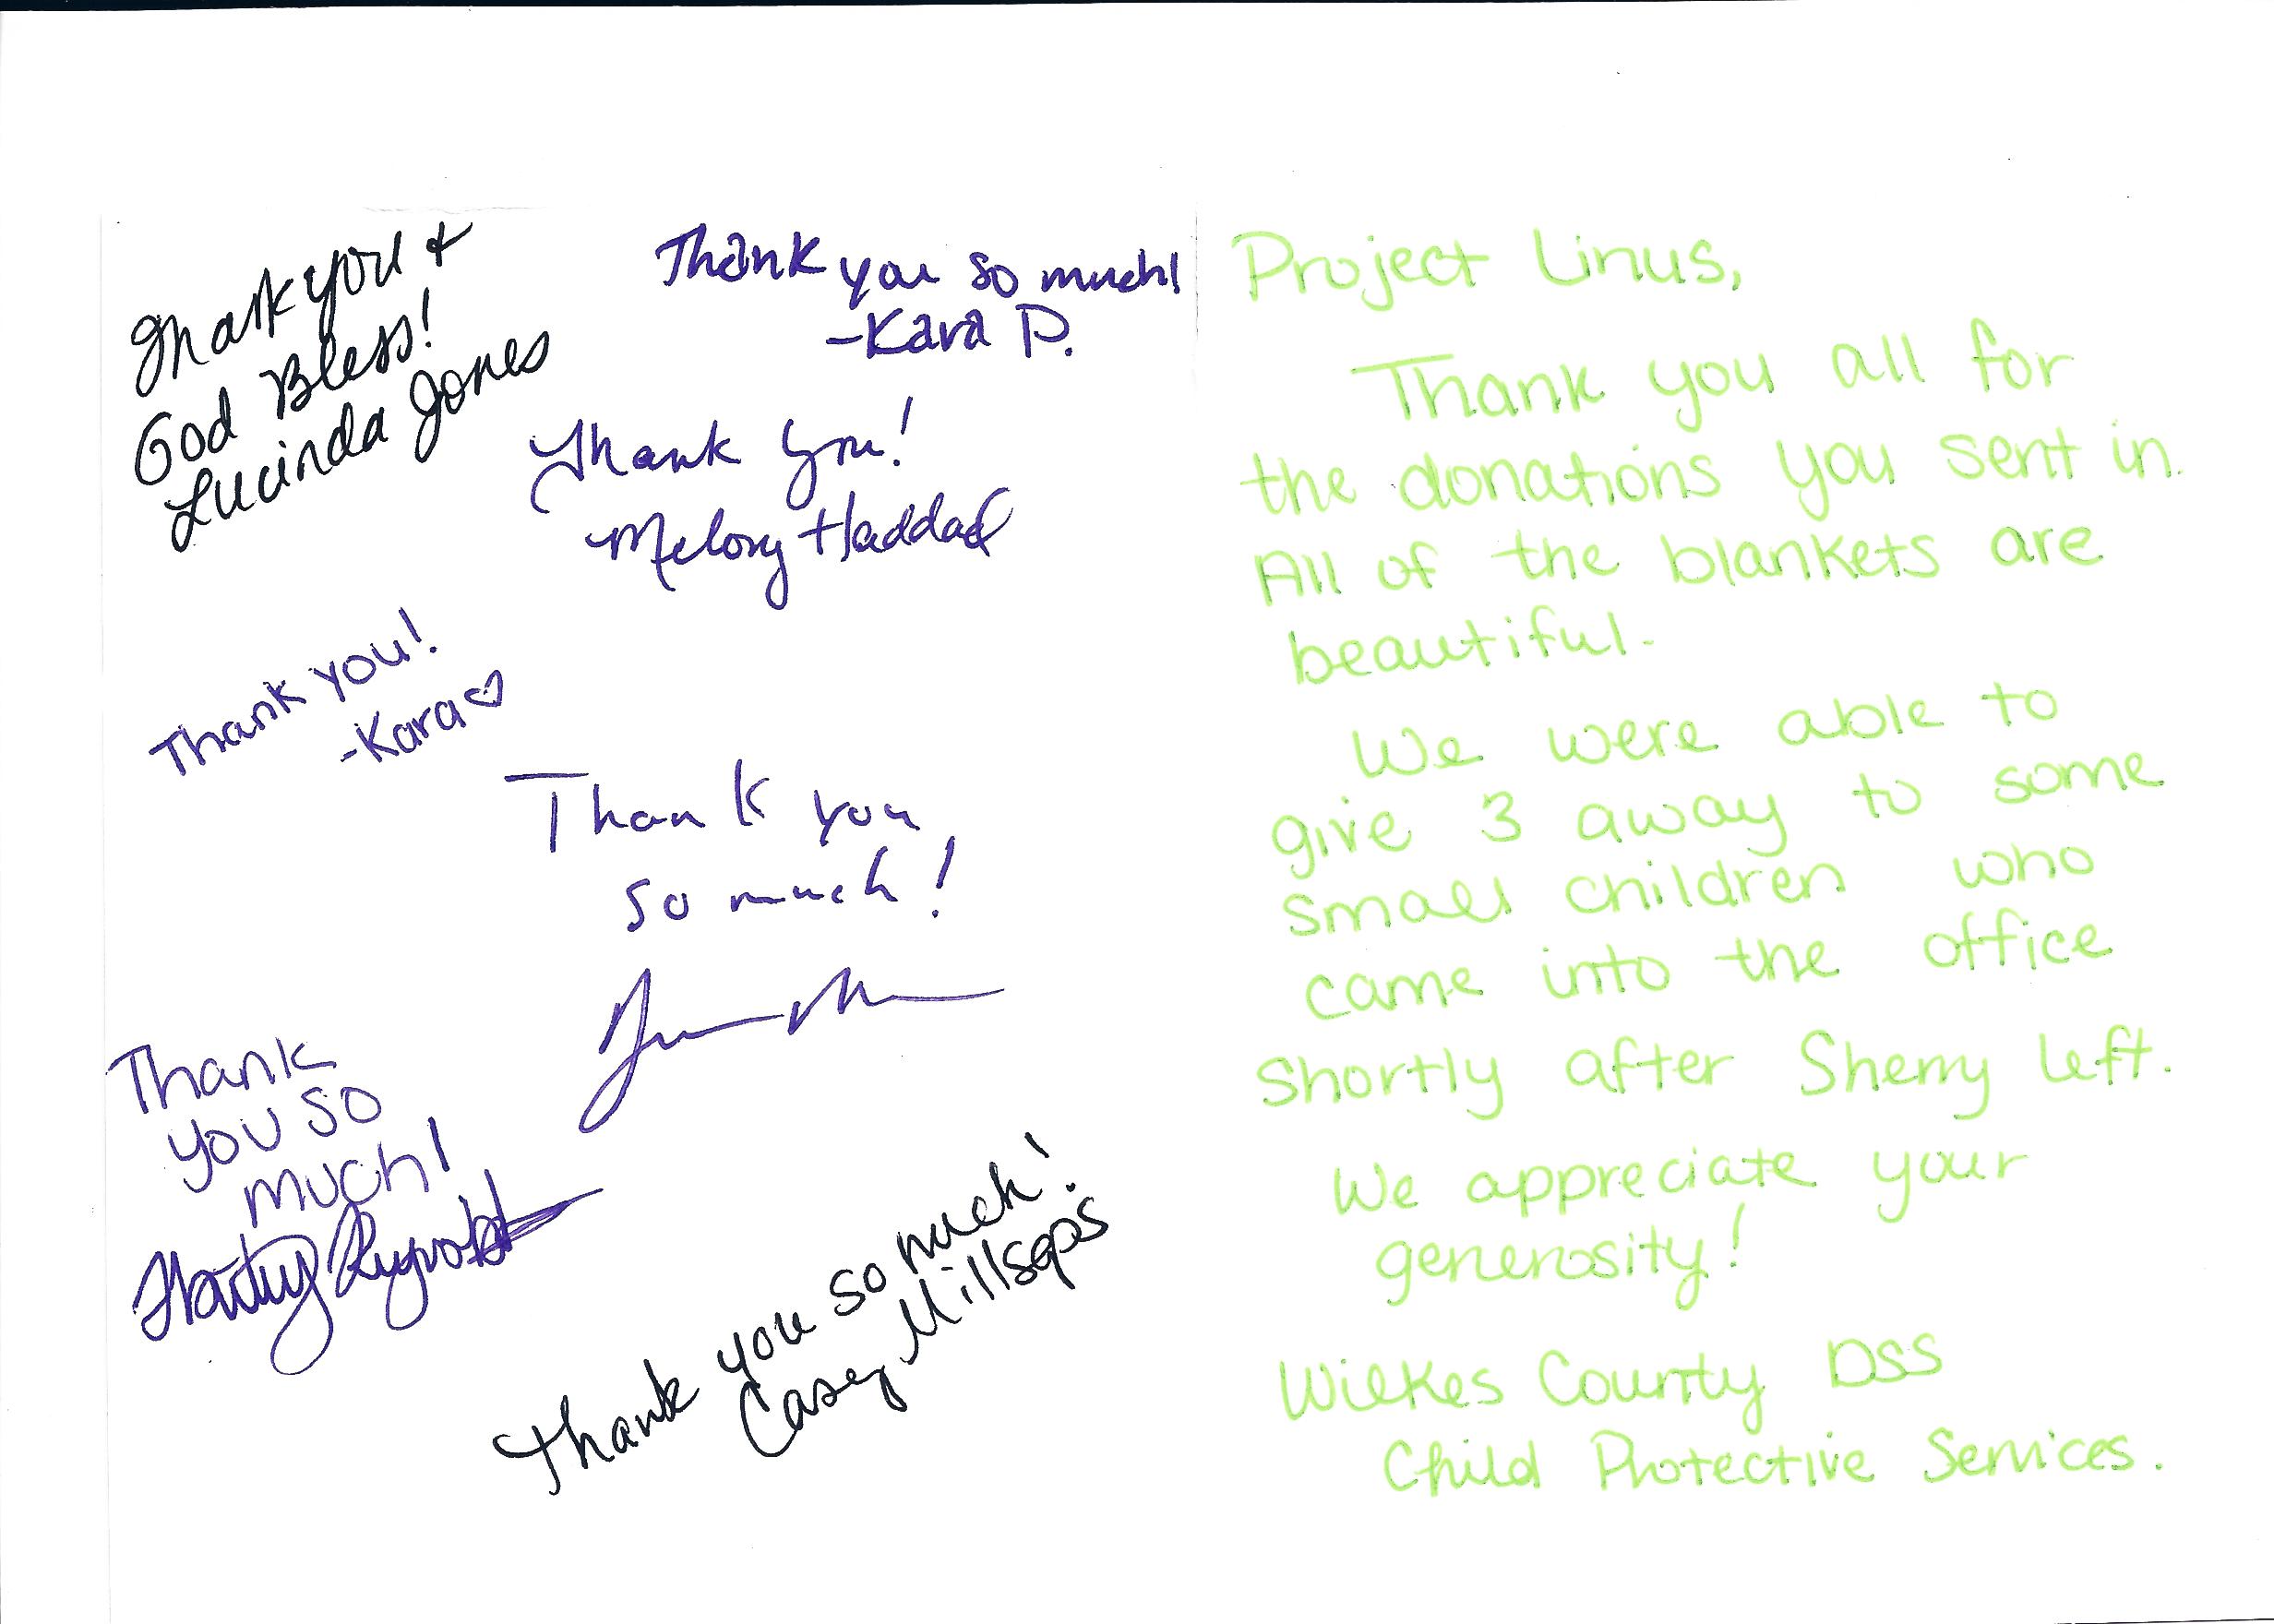 Thank you &
God Bless!
Lucinda Jones
Thank you so much!
-Kara P.
Thank you!
Melony Haddad
Thank you!
-Kara♡
Thank you
so much!
Thank
you so
much!
Reynolds
Thank you so much!
Casey Millsaps
Project Linus,
Thank you all for
the donations you sent in.
All of the blankets are
beautiful.
We were able to
give 3 away to some
small children who
came into the office
shortly after Sherry left.
We appreciate your
generosity!
Wilkes County DSS
Child Protective Services.